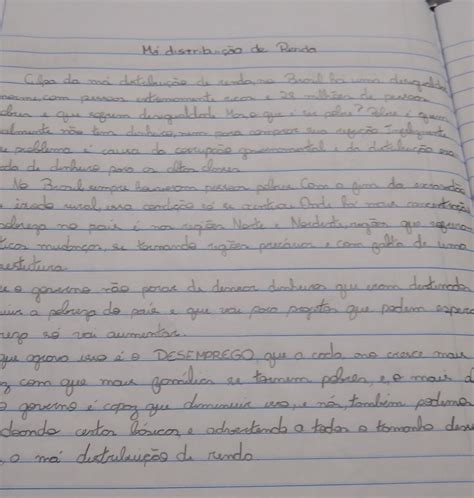 Má distribuição de Renda
Culpa da má distribuição de renda, no Brasil há uma desigualda
enorme, com pessoas extremamente ricas e 28 milhões de pessoas
pobres e que sofrem desigualdade. Mas o que é ser pobre? Pobre é quem
não tem dinheiro, nem para comprar sua refeição.
problema é causa da corrupção governamental e da distribuição
de dinheiro para as altas classes.
No Brasil sempre houveram pessoas pobres. Com o fim da escravidão
e rural, essa condição só Onde há maior concentração
pobreza no país é nas regiões Norte e Nordeste, regiões que
mudanças, se tornando regiões precárias e com falta de uma
estrutura.
e o governo não parar de desviar dinheiros que eram destinados
a pobreza do país e que vai para projetos que podem esperar
só vai aumentar.
que agrava isso é o DESEMPREGO, que a cada ano cresce mais
com que mais famílias se tornem pobres, e, o mais
governo é capaz que diminuir isso, e nós, também podemos
cestas básicas, e advertendo a todos o tamanho
a má distribuição de renda.